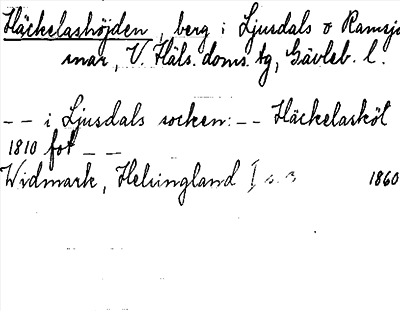 Häckelashöjden, berg i Ljusdals o Ramsjö
snar, V. Häls. doms. tg, Gävleb. l.
-- i Ljusdals socken: -- Häckelasköt
1810 fot --
Widmark, Helsingland I s. 3 1860